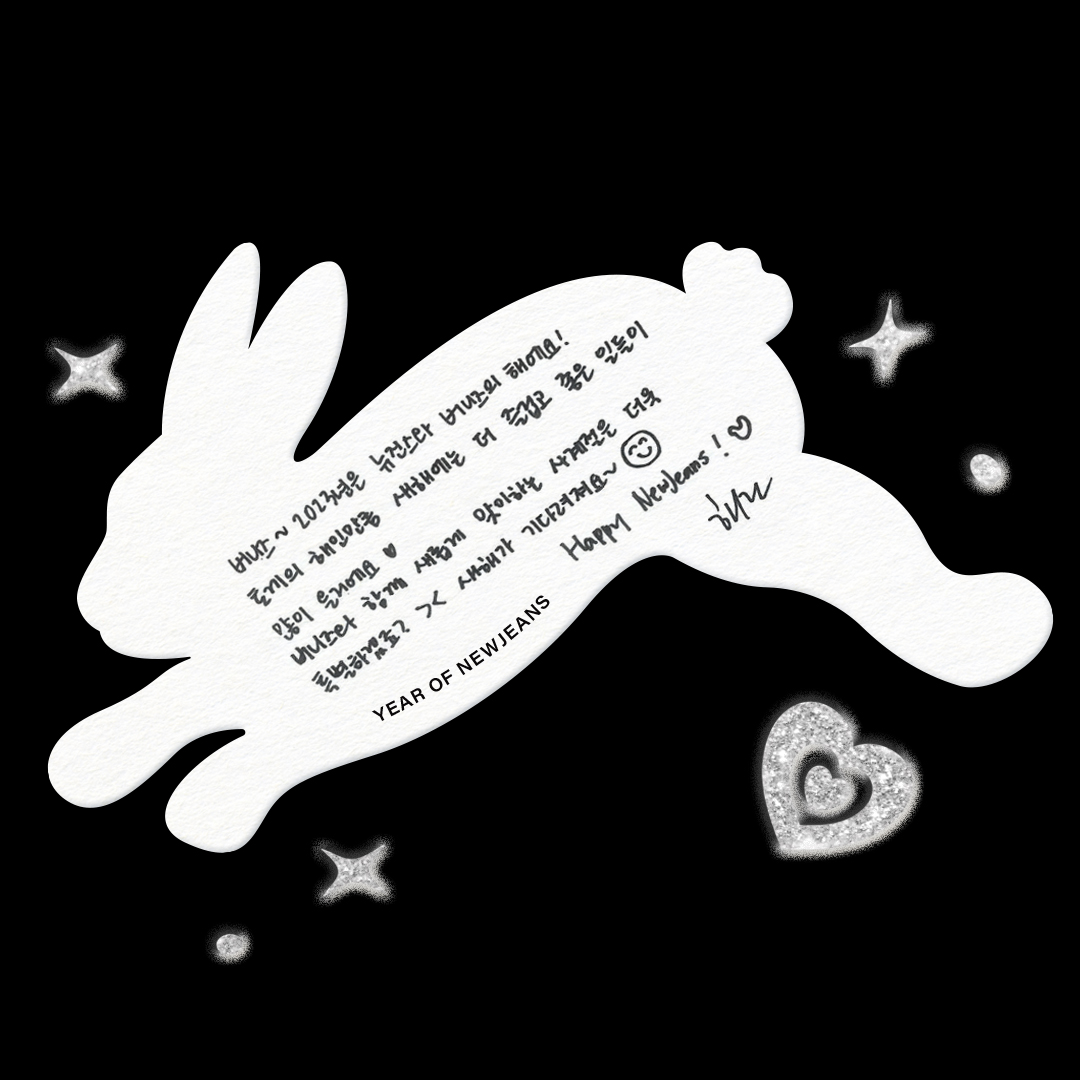 버니즈~ 2023년은 뉴진스와 버니즈의 해예요!
토끼의 해인만큼 새해에는 더 즐겁고 좋은 일들이
많이 올거예요♥
버니즈와 함께 새롭게 맞이하는 사계절은 더욱
특별하겠죠? >< 새해가 기다려져요~ 😊
Happy NewJeans! ♡
YEAR OF NEWJEANS